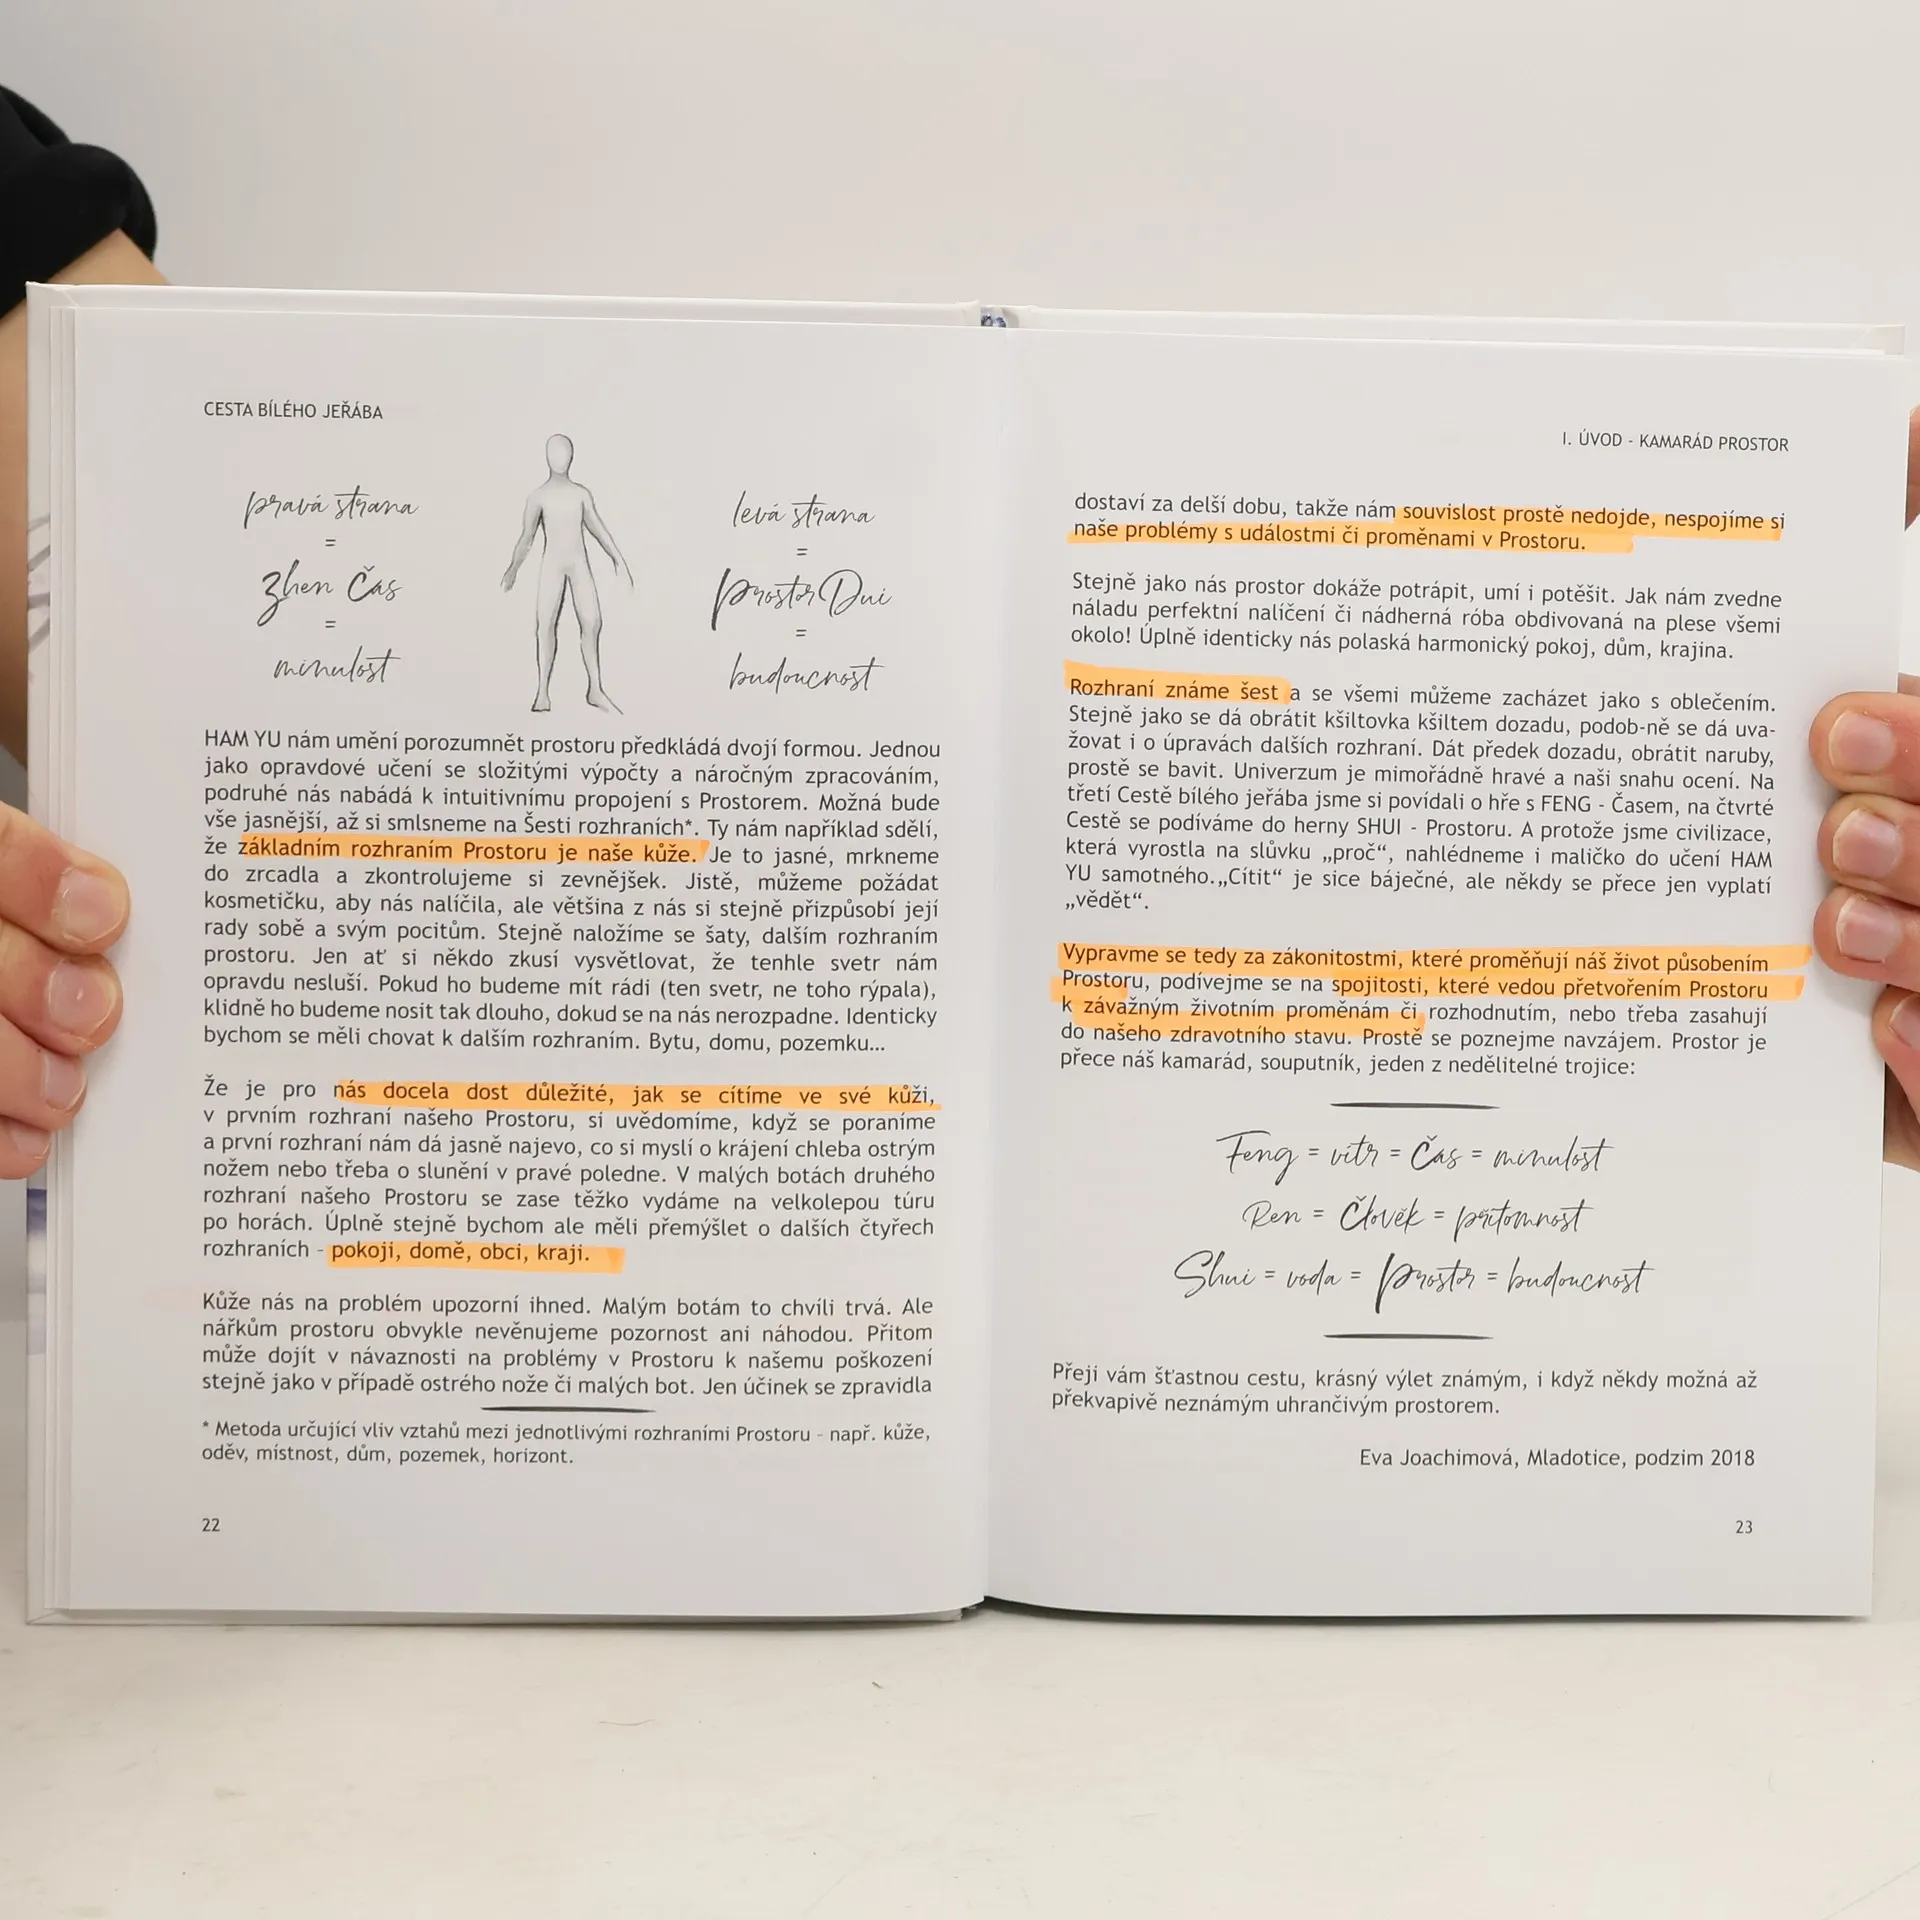 CESTA BÍLÉHO JEŘÁBA
pravá strana
=
zhen Čas
=
minulost
levá strana
=
prostor Dui
=
budoucnost
HAM YU nám umění porozumnět prostoru předkládá dvojí formou. Jednou
jako opravdové učení se složitými výpočty a náročným zpracováním,
podruhé nás nabádá k intuitivnímu propojení s Prostorem. Možná bude
vše jasnější, až si smlsneme na Šesti rozhraních*. Ty nám například sdělí,
že základním rozhraním Prostoru je naše kůže. Je to jasné, mrkneme
do zrcadla a zkontrolujeme si zevnějšek. Jistě, můžeme požádat
kosmetičku, aby nás nalíčila, ale většina z nás si stejně přizpůsobí její
rady sobě a svým pocitům. Stejně naložíme se šaty, dalším rozhraním
prostoru. Jen ať si někdo zkusí vysvětlovat, že tenhle svetr nám
opravdu nesluší. Pokud ho budeme mít rádi (ten svetr, ne toho rýpala),
klidně ho budeme nosit tak dlouho, dokud se na nás nerozpadne. Identicky
bychom se měli chovat k dalším rozhraním. Bytu, domu, pozemku...
Že je pro nás docela dost důležité, jak se cítíme ve své kůži,
v prvním rozhraní našeho Prostoru, si uvědomíme, když se poraníme
a první rozhraní nám dá jasně najevo, co si myslí o krájení chleba ostrým
nožem nebo třeba o slunění v pravé poledne. V malých botách druhého
rozhraní našeho Prostoru se zase těžko vydáme na velkolepou túru
po horách. Úplně stejně bychom ale měli přemýšlet o dalších čtyřech
rozhraních - pokoji, domě, obci, kraji.
Kůže nás na problém upozorní ihned. Malým botám to chvíli trvá. Ale
nářkům prostoru obvykle nevěnujeme pozornost ani náhodou. Přitom
může dojít v návaznosti na problémy v Prostoru k našemu poškození
stejně jako v případě ostrého nože či malých bot. Jen účinek se zpravidla
* Metoda určující vliv vztahů mezi jednotlivými rozhraními Prostoru - např. kůže,
oděv, místnost, dům, pozemek, horizont.
22
I. ÚVOD - KAMARÁD PROSTOR
dostaví za delší dobu, takže nám souvislost prostě nedojde, nespojíme si
naše problémy s událostmi či proměnami v Prostoru.
Stejně jako nás prostor dokáže potrápit, umí i potěšit. Jak nám zvedne
náladu perfektní nalíčení či nádherná róba obdivovaná na plese všemi
okolo! Úplně identicky nás polaská harmonický pokoj, dům, krajina.
Rozhraní známe šest a se všemi můžeme zacházet jako s oblečením.
Stejně jako se dá obrátit kšiltovka kšiltem dozadu, podob-ně se dá uva-
žovat i o úpravách dalších rozhraní. Dát předek dozadu, obrátit naruby,
prostě se bavit. Univerzum je mimořádně hravé a naši snahu ocení. Na
třetí Cestě bílého jeřába jsme si povídali o hře s FENG - Časem, na čtvrté
Cestě se podíváme do herny SHUI - Prostoru. A protože jsme civilizace,
která vyrostla na slůvku „proč“, nahlédneme i maličko do učení HAM
YU samotného.„Cítit“ je sice báječné, ale někdy se přece jen vyplatí
„vědět“.
Vypravme se tedy za zákonitostmi, které proměňují náš život působením
Prostoru, podívejme se na spojitosti, které vedou přetvořením Prostoru
k závažným životním proměnám či rozhodnutím, nebo třeba zasahují
do našeho zdravotního stavu. Prostě se poznejme navzájem. Prostor je
přece náš kamarád, souputník, jeden z nedělitelné trojice:
Feng = vítr = Čas = minulost
Ren = Člověk = přítomnost
Shui = voda = Prostor = budoucnost
Přeji vám šťastnou cestu, krásný výlet známým, i když někdy možná až
překvapivě neznámým uhrančivým prostorem.
Eva Joachimová, Mladotice, podzim 2018
23